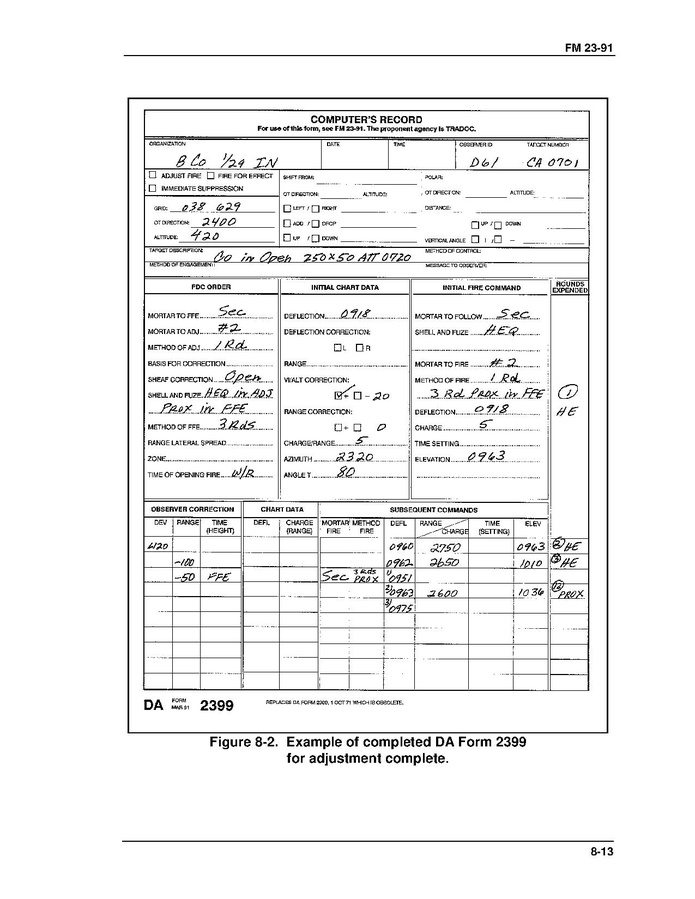 FM 23-91
COMPUTER'S RECORD
For use of this form, see FM 23-91. The proponent agency is TRADOC.
ORGANIZATION DATE TIME OBSERVER ID TARGET NUMBER
B Co 1/29 IN D61 CA 0701
ADJUST FIRE FIRE FOR EFFECT SHIFT FROM: POLAR:
IMMEDIATE SUPPRESSION
OT DIRECTION: ALTITUDE: OT DIRECTION: ALTITUDE:
GRID: 038 629 LEFT / RIGHT DISTANCE:
OT DIRECTION: 2400 ADD / DROP UP / DOWN
ALTITUDE: 420 UP / DOWN VERTICAL ANGLE + / -
TARGET DESCRIPTION: Co in Open 250x50 ATT 0720 METHOD OF CONTROL:
METHOD OF ENGAGEMENT: MESSAGE TO OBSERVER:
FDC ORDER INITIAL CHART DATA INITIAL FIRE COMMAND ROUNDS EXPENDED
MORTAR TO FFE Sec DEFLECTION 0918 MORTAR TO FOLLOW Sec
MORTAR TO ADJ #2 DEFLECTION CORRECTION: SHELL AND FUZE HEQ
METHOD OF ADJ 1 Rd L R
BASIS FOR CORRECTION RANGE MORTAR TO FIRE #2
SHEAF CORRECTION Open VI/ALT CORRECTION: METHOD OF FIRE 1 Rd
SHELL AND FUZE HEQ in ADJ + - 20 3 Rd PROX in FFE 1
PROX in FFE RANGE CORRECTION: DEFLECTION 0918 HE
METHOD OF FFE 3 Rds + - 0 CHARGE 5
RANGE LATERAL SPREAD CHARGE/RANGE 5 TIME SETTING
ZONE AZIMUTH 2320 ELEVATION 0963
TIME OF OPENING FIRE W/R ANGLE T 80
OBSERVER CORRECTION CHART DATA SUBSEQUENT COMMANDS
DEV RANGE TIME (HEIGHT) DEFL CHARGE (RANGE) MORTAR FIRE METHOD FIRE DEFL RANGE CHARGE TIME (SETTING) ELEV
0960 2750 0963 2 HE
-100 0962 2650 1010 3 HE
-50 FFE Sec 3 Rds PROX 1/ 0951
2/ 0963 2600 1036 12 PROX
3/ 0975
DA FORM MAR 91 2399 REPLACES DA FORM 2399, 1 OCT 71 WHICH IS OBSOLETE.
Figure 8-2. Example of completed DA Form 2399
for adjustment complete.
8-13